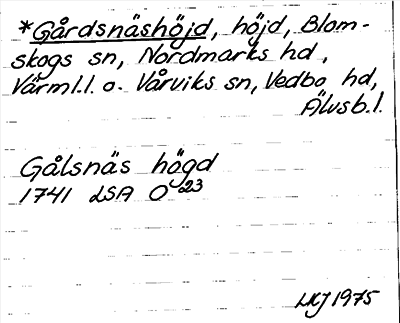 *Gårdsnäshöjd, höjd, Blom-
skogs sn, Nordmarks hd,
Värml.l. o. Vårviks sn, Vedbo hd,
Älvsb.l.
Gålsnäs högd
1741 LSA O 23
LKJ 1975